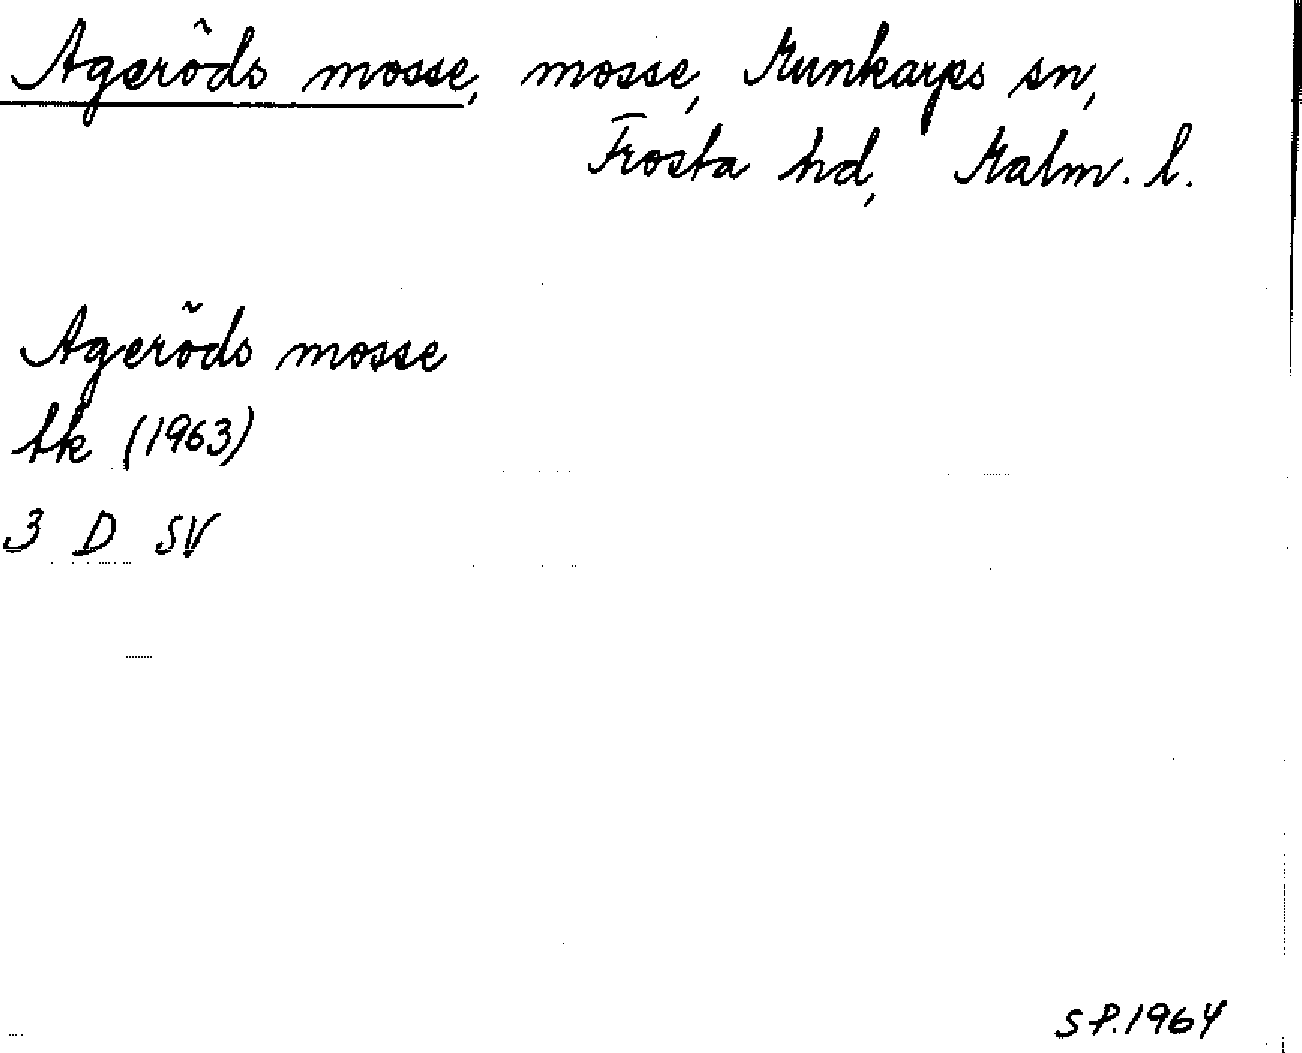 Ageröds mosse, mosse, Munkarps sn,
Frosta hd, Malm. l.
Ageröds mosse
tk (1963)
3 D SV
SP.1964